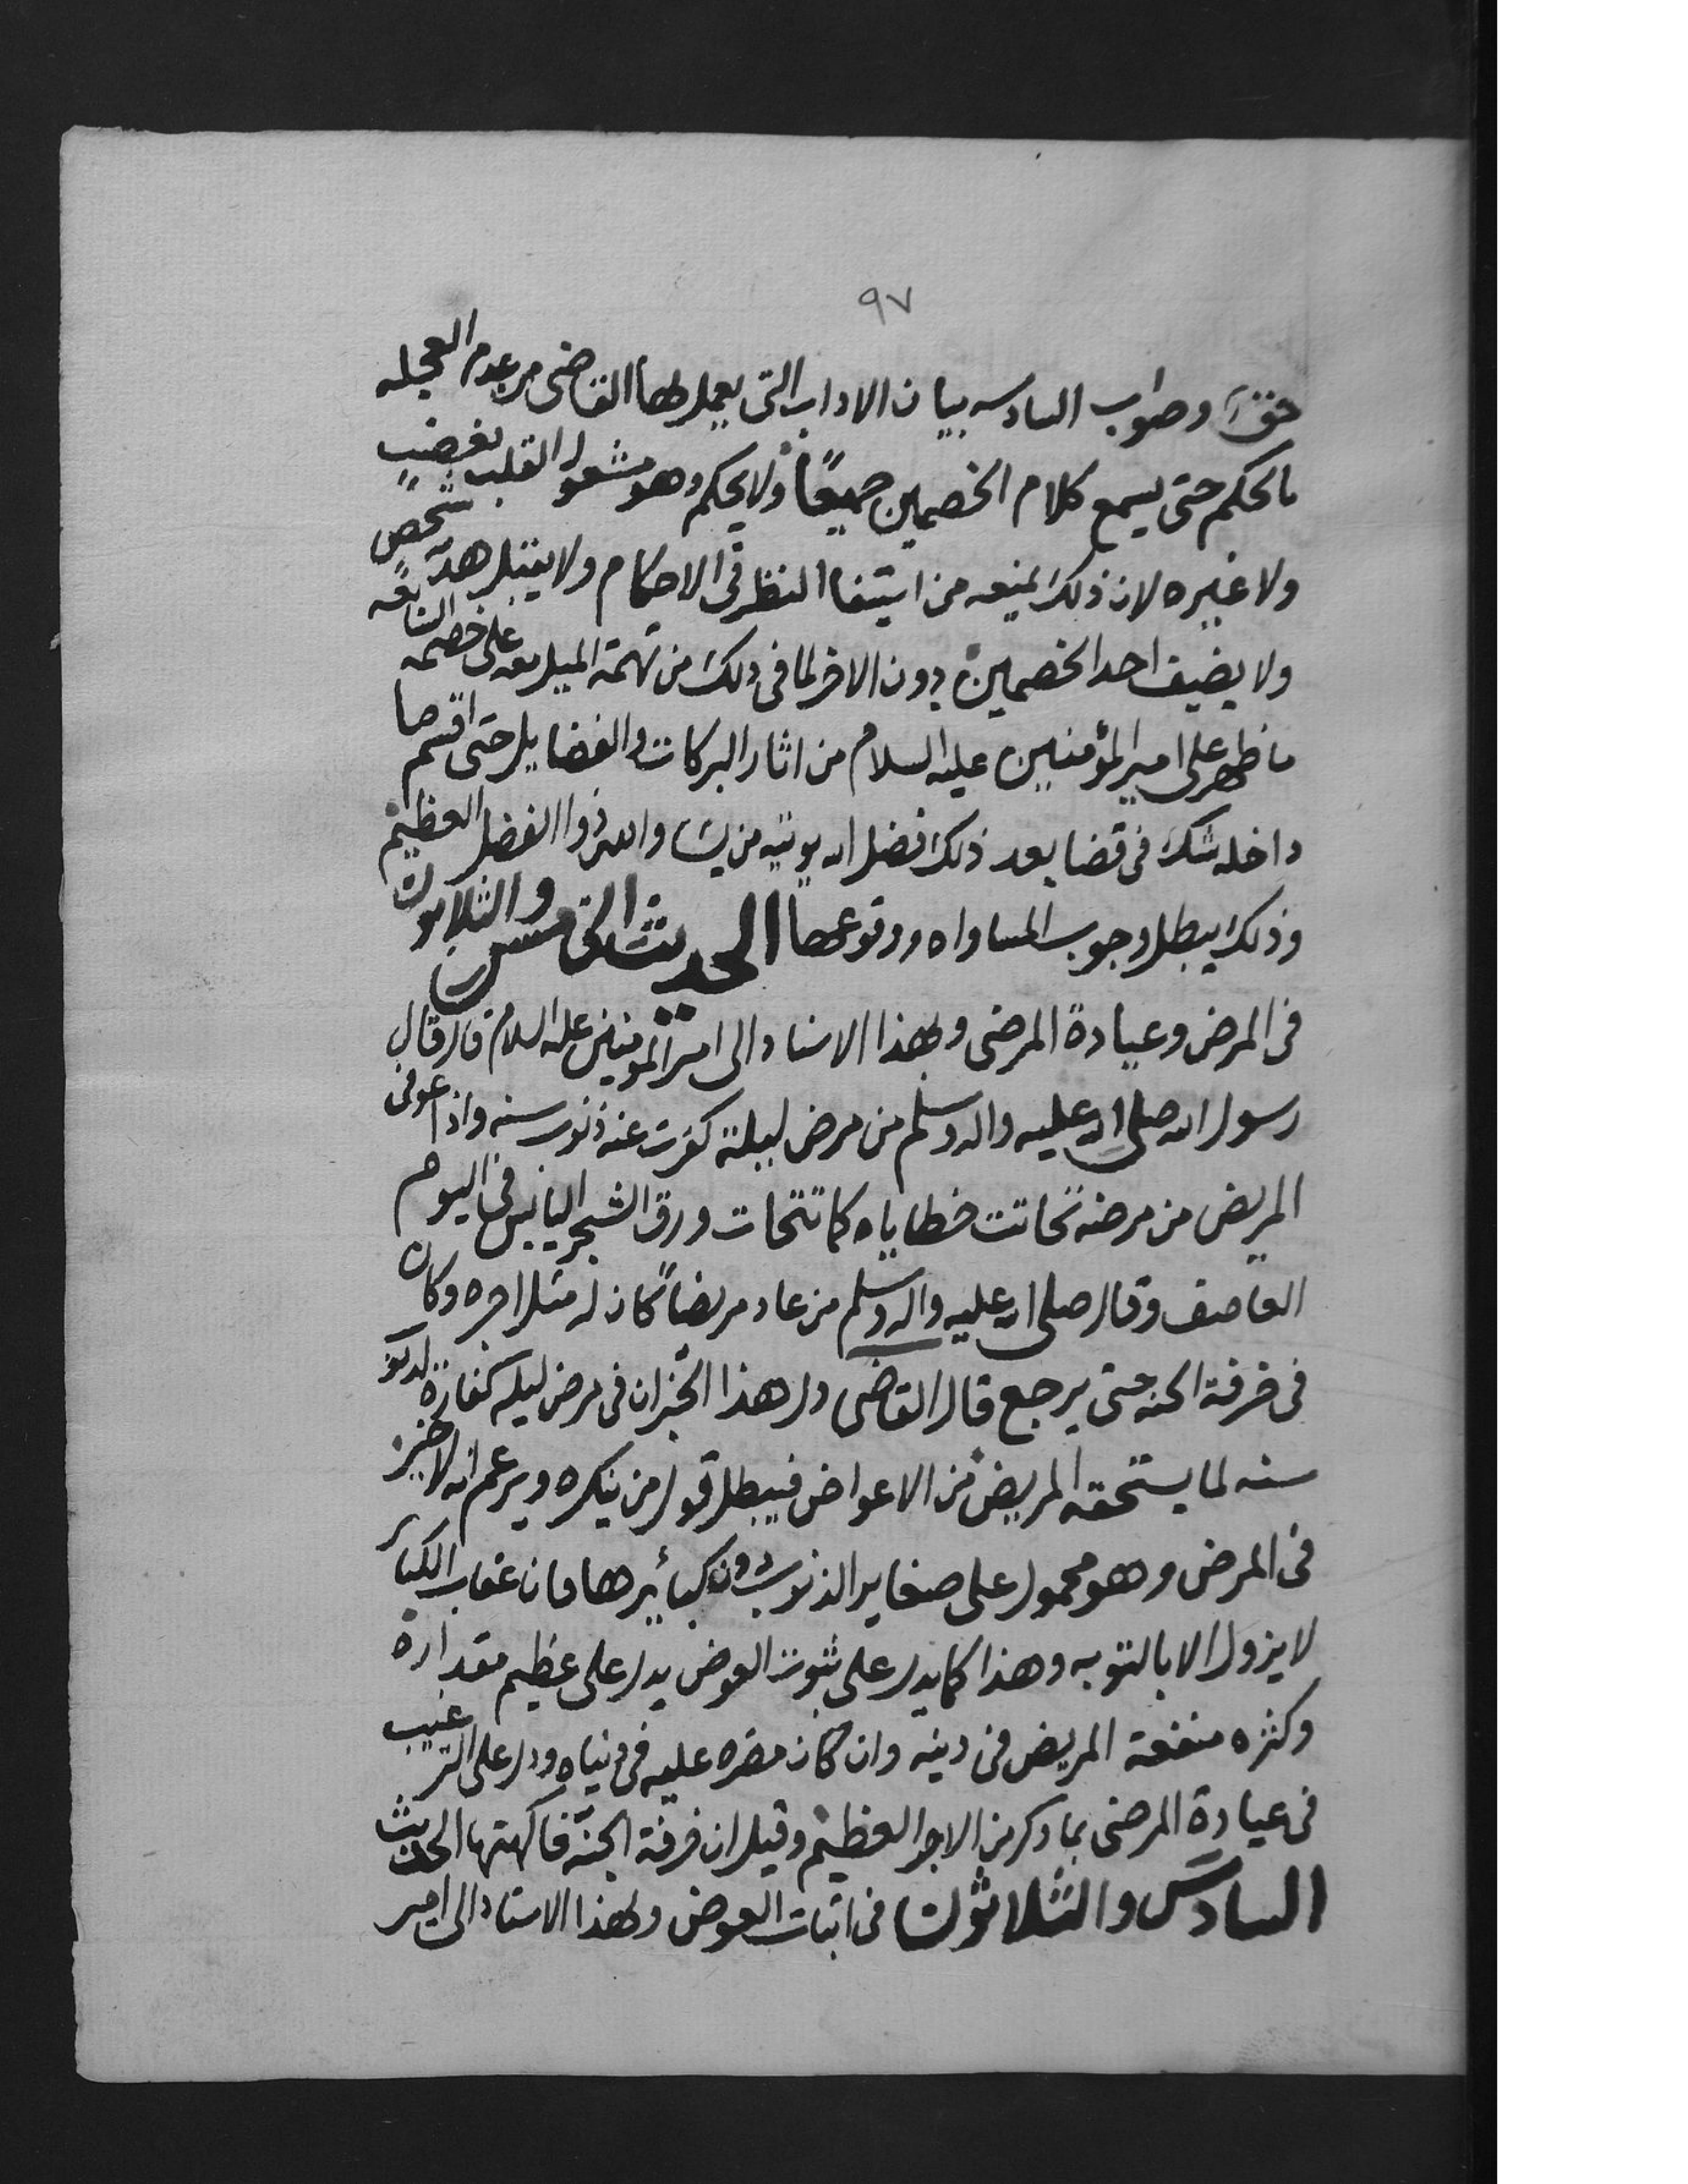 ٩٧
حق وصواب السادسه بيان الاداب التى يعمل بها القاضى من عدم العجله
بالحكم حتى يسمع كلام الخصمين جميعًا ولا يحكم وهو مشغول القلب بغضبٍ
ولا غيره لان ذلك يمنعه من استيفا النظر فى الاحكام ولا يقبل هديه شخصٍ
ولا يضيف احد الخصمين دون الاخر لما فى ذلك من تهمة الميل معه على خصمه السابعه
ما ظهر على امير المؤمنين عليه السلام من اثار البركات والفضايل حتى اقسم ما
داخله شك فى قضا بعد ذلك فضل الله يوتيه من يشا والله ذوا الفضل العظيم
وذلك يبطل وجوب المساواه ووقوعها الحديث الخامس والثلاثون
فى المرض وعيادة المرضى وبهذا الاسناد الى امير المومنين عليه السلام قال قال
رسول الله صلى الله عليه واله وسلم من مرض ليلة كفرت عنه ذنوب سنه واذا عوفى
المريض من مرضه تحاتت خطاياه كما تتحات ورق الشجر اليابس فى اليوم
العاصف وقال صلى الله عليه واله وسلم من عاد مريضاً كان له مثل اجره وكان
فى خرفة الجنه حتى يرجع قال القاضى دل هذا الخبر ان فى مرض ليله كفارة لذنوب
سنه لما يستحقه المريض من الاعواض فيبطل قول من ينكره ويزعم انه لا خير
فى المرض وهو محمول على صغاير الذنوب دون كبائرها فان عقاب الكبائر
لا يزول الا بالتوبه وهذا كما يدل على ثبوت العوض يدل على عظيم مقداره
وكثره منفعة المريض فى دينه وان كان مضره عليه فى دنياه ودل على الترغيب
فى عيادة المرضى بما ذكر من الاجر العظيم وقيل ان خرفة الجنة فاكهتها الحديث
السادس والثلاثون فى اثبات العوض وبهذا الاسناد الى امير